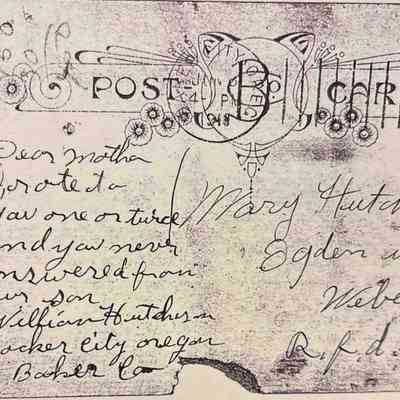 POST CAR
PM
Dear motha
wrote to
yaw one or twice
and yaw never
answered from
our son
William Hutchison
ocker City oregon
Baker Co
Mary Hutch
Ogden
Webe
R.f.d.